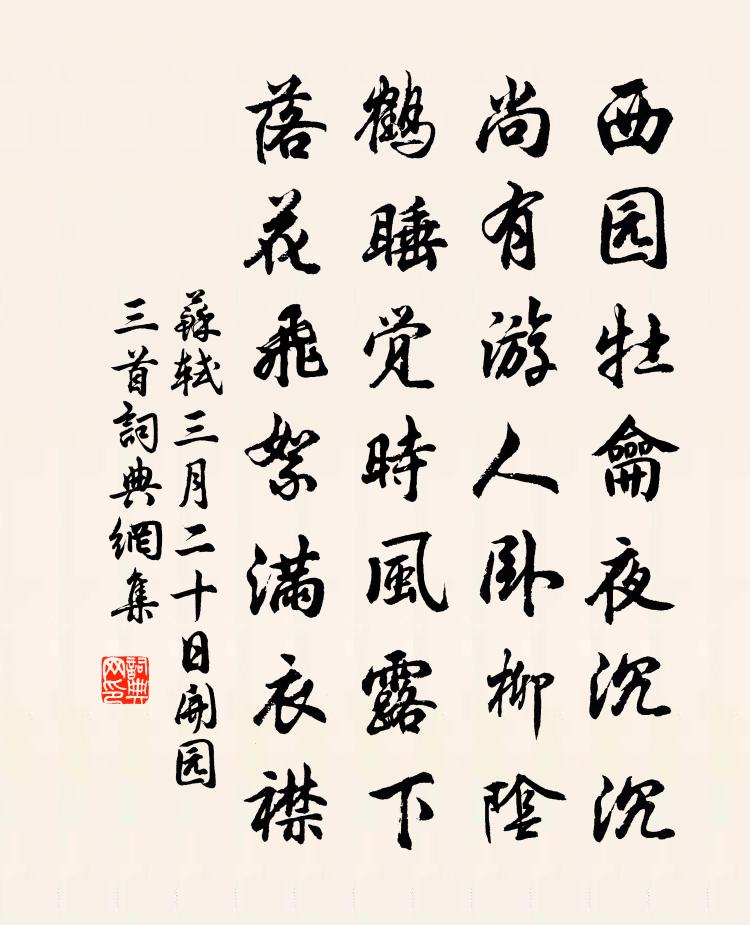 西园牡龠夜沉沉
尚有游人卧柳陰
鶴睡觉時風露下
落花飛絮满衣襟
蘇軾三月二十日開园
三首詞典網集
詞典
网